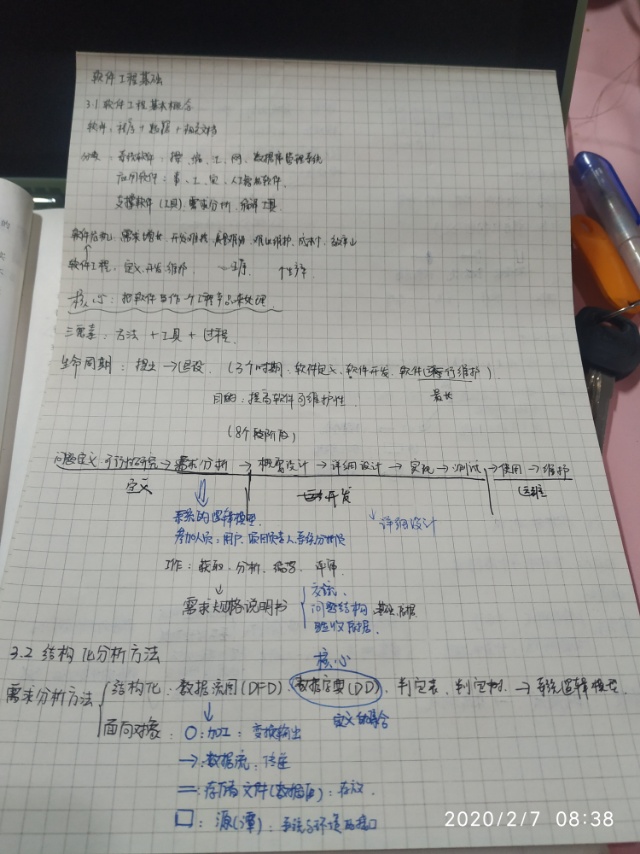 软件工程基础
3.1 软件工程基本概念
软件：程序+数据+相关文档
分类：系统软件：操、编、汇、网、数据库管理系统
应用软件：事、工、实、人工智能软件.
支撑软件(工具)：需求分析、编译工具
软件危机：需求增长、开发难控、质量难保、难以维护、成本↑、效率↓
软件工程：定义、开发、维护
核心：把软件当作一个工程产品来处理
三元素：方法+工具+过程.
生命周期：提出→退役. (3个时期：软件定义、软件开发、软件运行维护)
目的：提高软件可维护性. 最长
(8个阶段)
问题定义 可行性研究→需求分析→概要设计→详细设计→实现→测试→使用→维护
定义 开发
系统的逻辑模型 ↓详细设计
参加人员：用户、
工作：获取、分析、编写、评审.
需求规格说明书
交流
问题结构、基础、依据
验收依据.
3.2 结构化分析方法 核心
需求分析方法 结构化：数据流图(DFD)、数据字典(DD)、判定表、判定树→系统逻辑模型.
面向对象： 定义的集合
○：加工：变换输出
→：数据流：传送
=：存储文件(数据源)：存放.
□：源(潭)：系统与环境的接口
2020/2/7 08:38